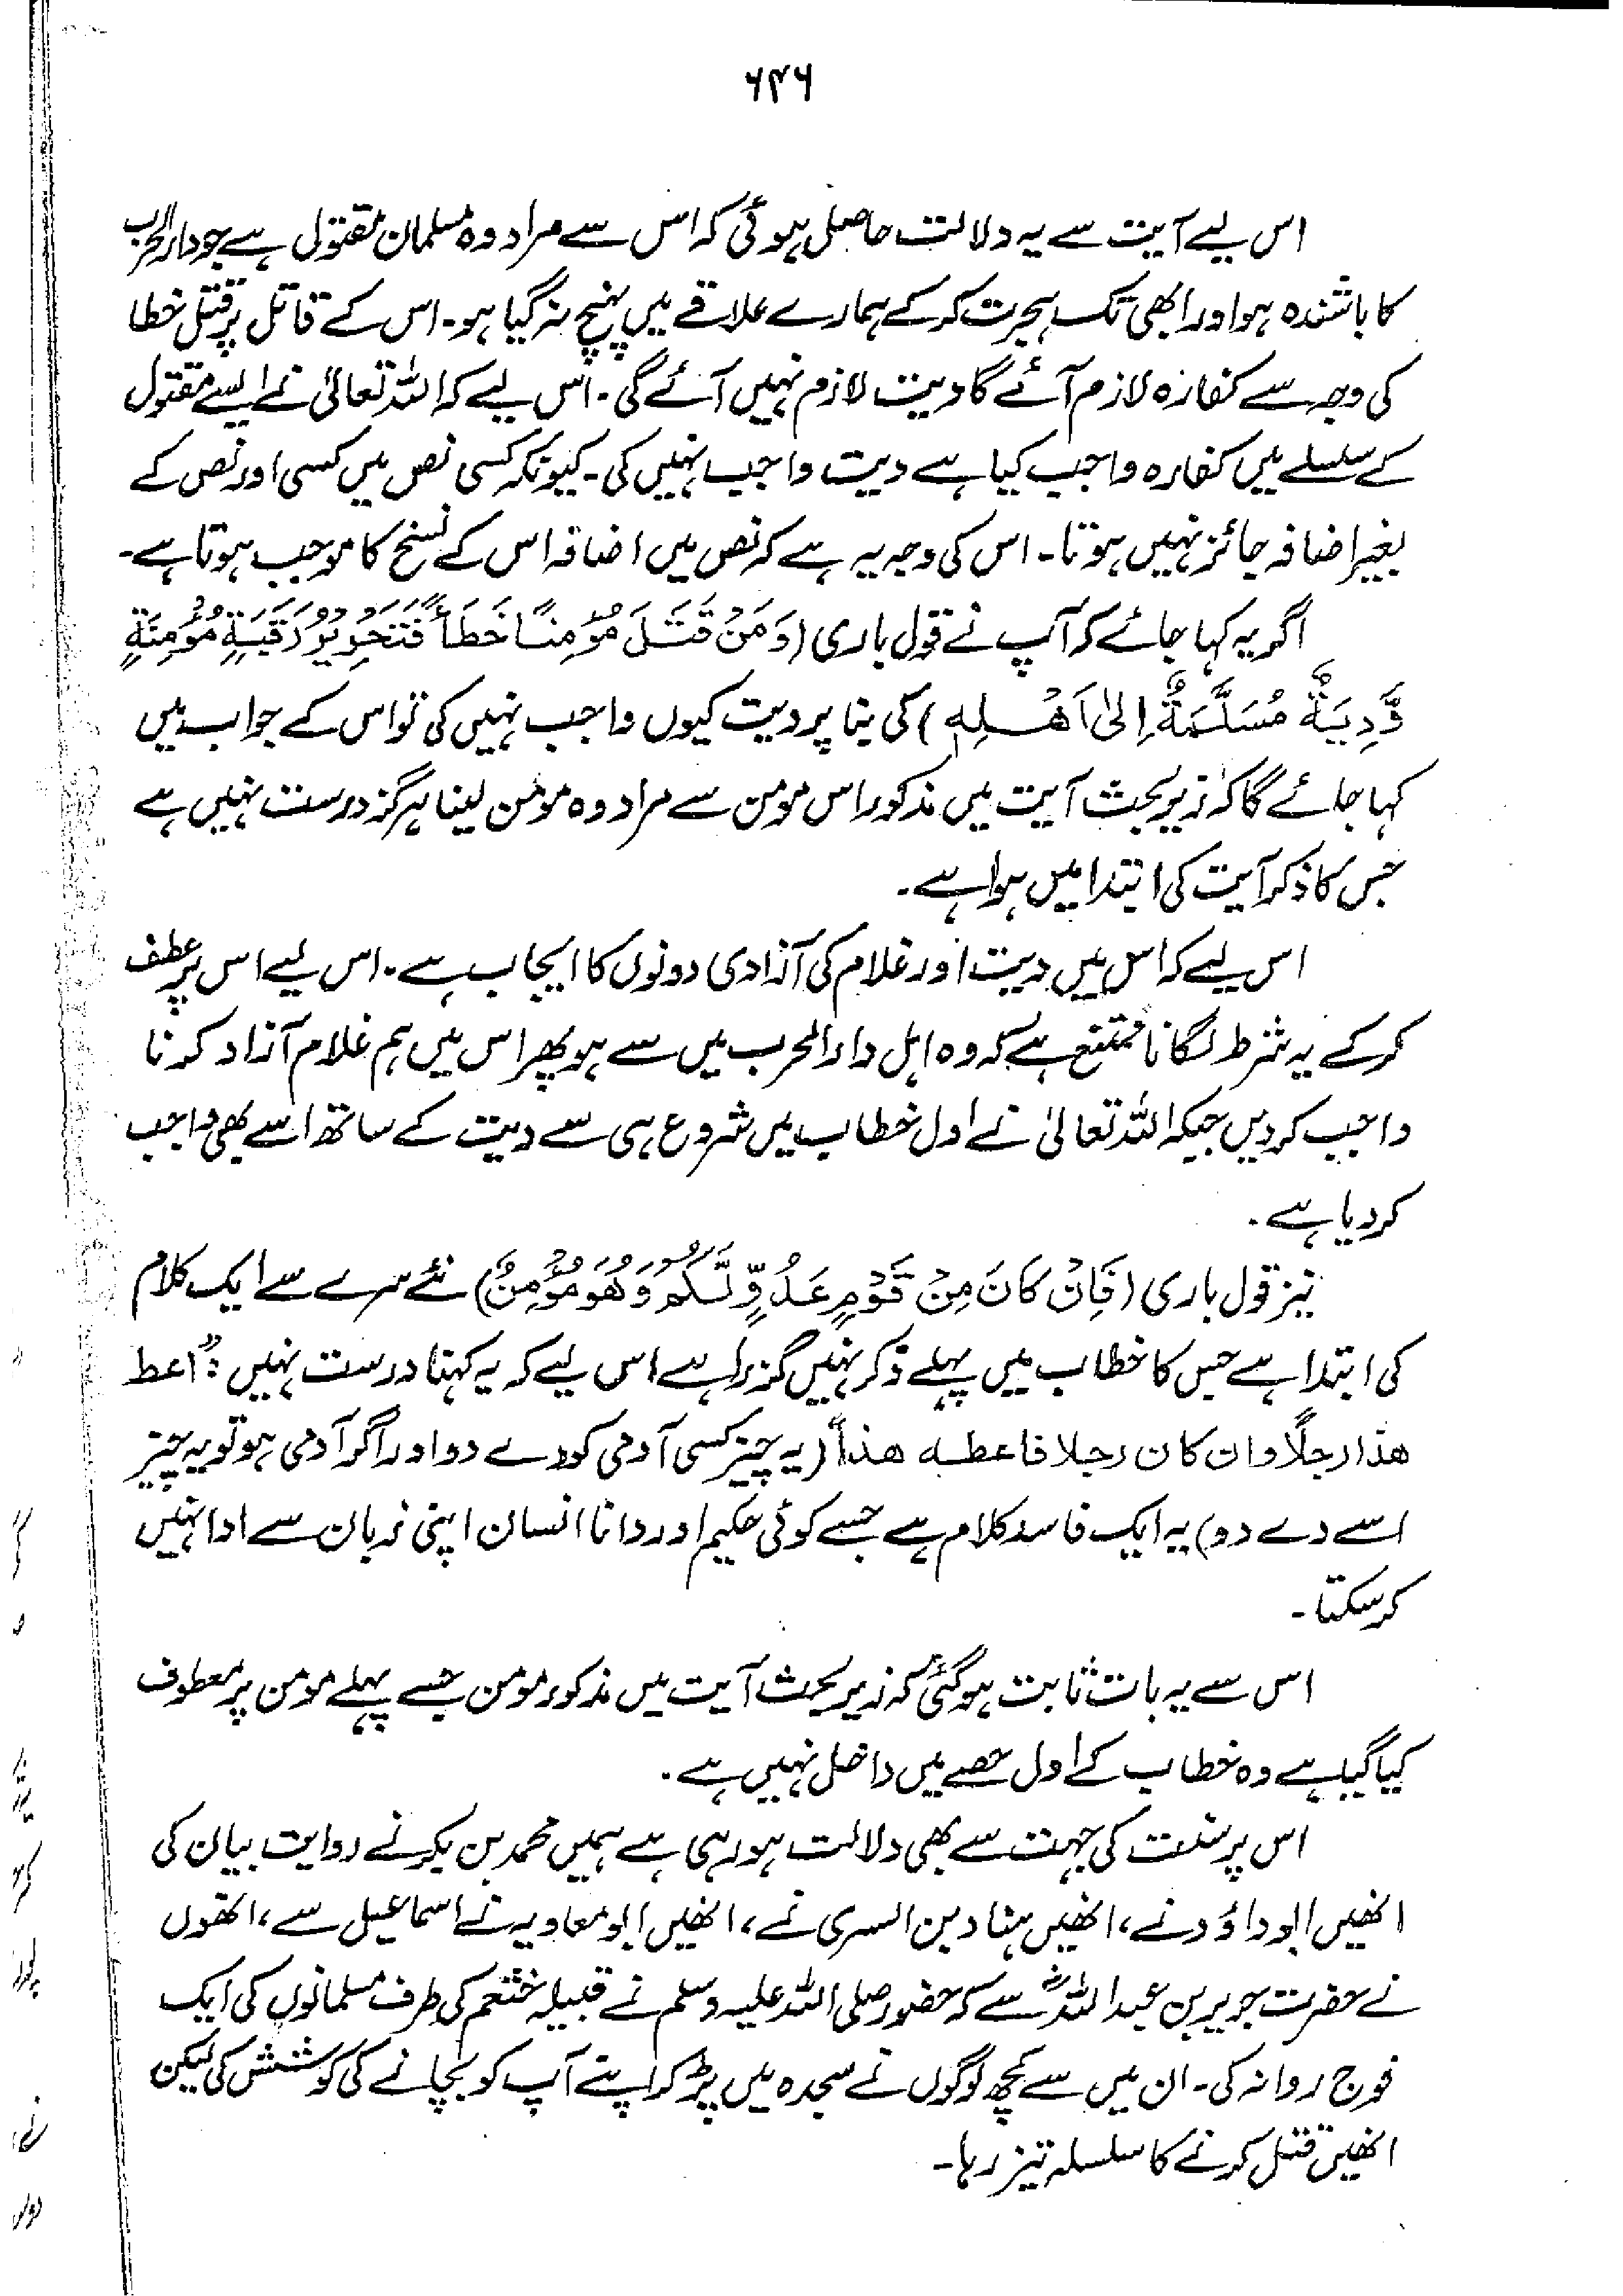 ۶۴۶
اس لیے آیت سے یہ دلالت حاصل ہوئی کہ اس سے مراد وہ مسلمان مقتول ہے جو دار الحرب
کا باشندہ ہو اور ابھی تک ہجرت کر کے ہمارے علاقے میں پہنچ نہ گیا ہو۔ اس کے قاتل پر قتل خطا
کی وجہ سے کفارہ لازم آئے گا دیت لازم نہیں آئے گی۔ اس لیے کہ اللہ تعالیٰ نے ایسے مقتول
کے سلسلے میں کفارہ واجب کیا ہے دیت واجب نہیں کی۔ کیونکہ کسی نص میں کسی اور نص کے
بغیر اضافہ جائز نہیں ہوتا۔ اس کی وجہ یہ ہے کہ نص میں اضافہ اس کے نسخ کا موجب ہوتا ہے۔
اگر یہ کہا جائے کہ آپ نے قول باری (وَمَنْ قَتَلَ مُؤْمِنًا خَطَأً فَتَحْرِيْرُ رَقَبَةٍ مُّؤْمِنَةٍ
وَّدِيَةٌ مُّسَلَّمَةٌ اِلىٰ اَهْلِهٖ) کی بنا پر دیت کیوں واجب نہیں کی تو اس کے جواب میں
کہا جائے گا کہ زیر بحث آیت میں مذکور اس مومن سے مراد وہ مومن لینا ہرگز درست نہیں ہے
جس کا ذکر آیت کی ابتدا میں ہوا ہے۔
اس لیے کہ اس میں دیت اور غلام کی آزادی دونوں کا ایجاب ہے۔ اس لیے اس پر عطف
کر کے یہ شرط لگانا ممتنع ہے کہ وہ اہل دار الحرب میں سے ہو پھر اس میں ہم غلام آزاد کرنا
واجب کر دیں جبکہ اللہ تعالیٰ نے اول خطاب میں شروع ہی سے دیت کے ساتھ اسے بھی واجب
کر دیا ہے۔
نیز قول باری (فَاِنْ كَانَ مِنْ قَوْمٍ عَدُوٍّ لَّكُمْ وَهُوَ مُؤْمِنٌ) نئے سرے سے ایک کلام
کی ابتدا ہے جس کا خطاب میں پہلے ذکر نہیں گزرا ہے اس لیے کہ یہ کہنا درست نہیں: "اعط
هذا رجلًا وان كان رجلا فاعطه هذا" (یہ چیز کسی آدمی کو دے دو اور اگر آدمی ہو تو یہ چیز
اسے دے دو) یہ ایک فاسد کلام ہے جسے کوئی حکیم اور دانا انسان اپنی زبان سے ادا نہیں
کر سکتا۔
اس سے یہ بات ثابت ہو گئی کہ زیر بحث آیت میں مذکور مومن جسے پہلے مومن پر معطوف
کیا گیا ہے وہ خطاب کے اول حصے میں داخل نہیں ہے۔
اس پر سنت کی جہت سے بھی دلالت ہو رہی ہے ہمیں محمد بن بکر نے روایت بیان کی
انھیں ابوداؤد نے، انھیں ہناد بن السری نے، انھیں ابو معاویہ نے اسماعیل سے، انھوں
نے حضرت جریر بن عبد اللہؓ سے کہ حضور صلی اللہ علیہ وسلم نے قبیلہ خثعم کی طرف مسلمانوں کی ایک
فوج روانہ کی۔ ان میں سے کچھ لوگوں نے سجدہ میں پڑ کر اپنے آپ کو بچانے کی کوشش کی لیکن
انھیں قتل کرنے کا سلسلہ تیز رہا۔